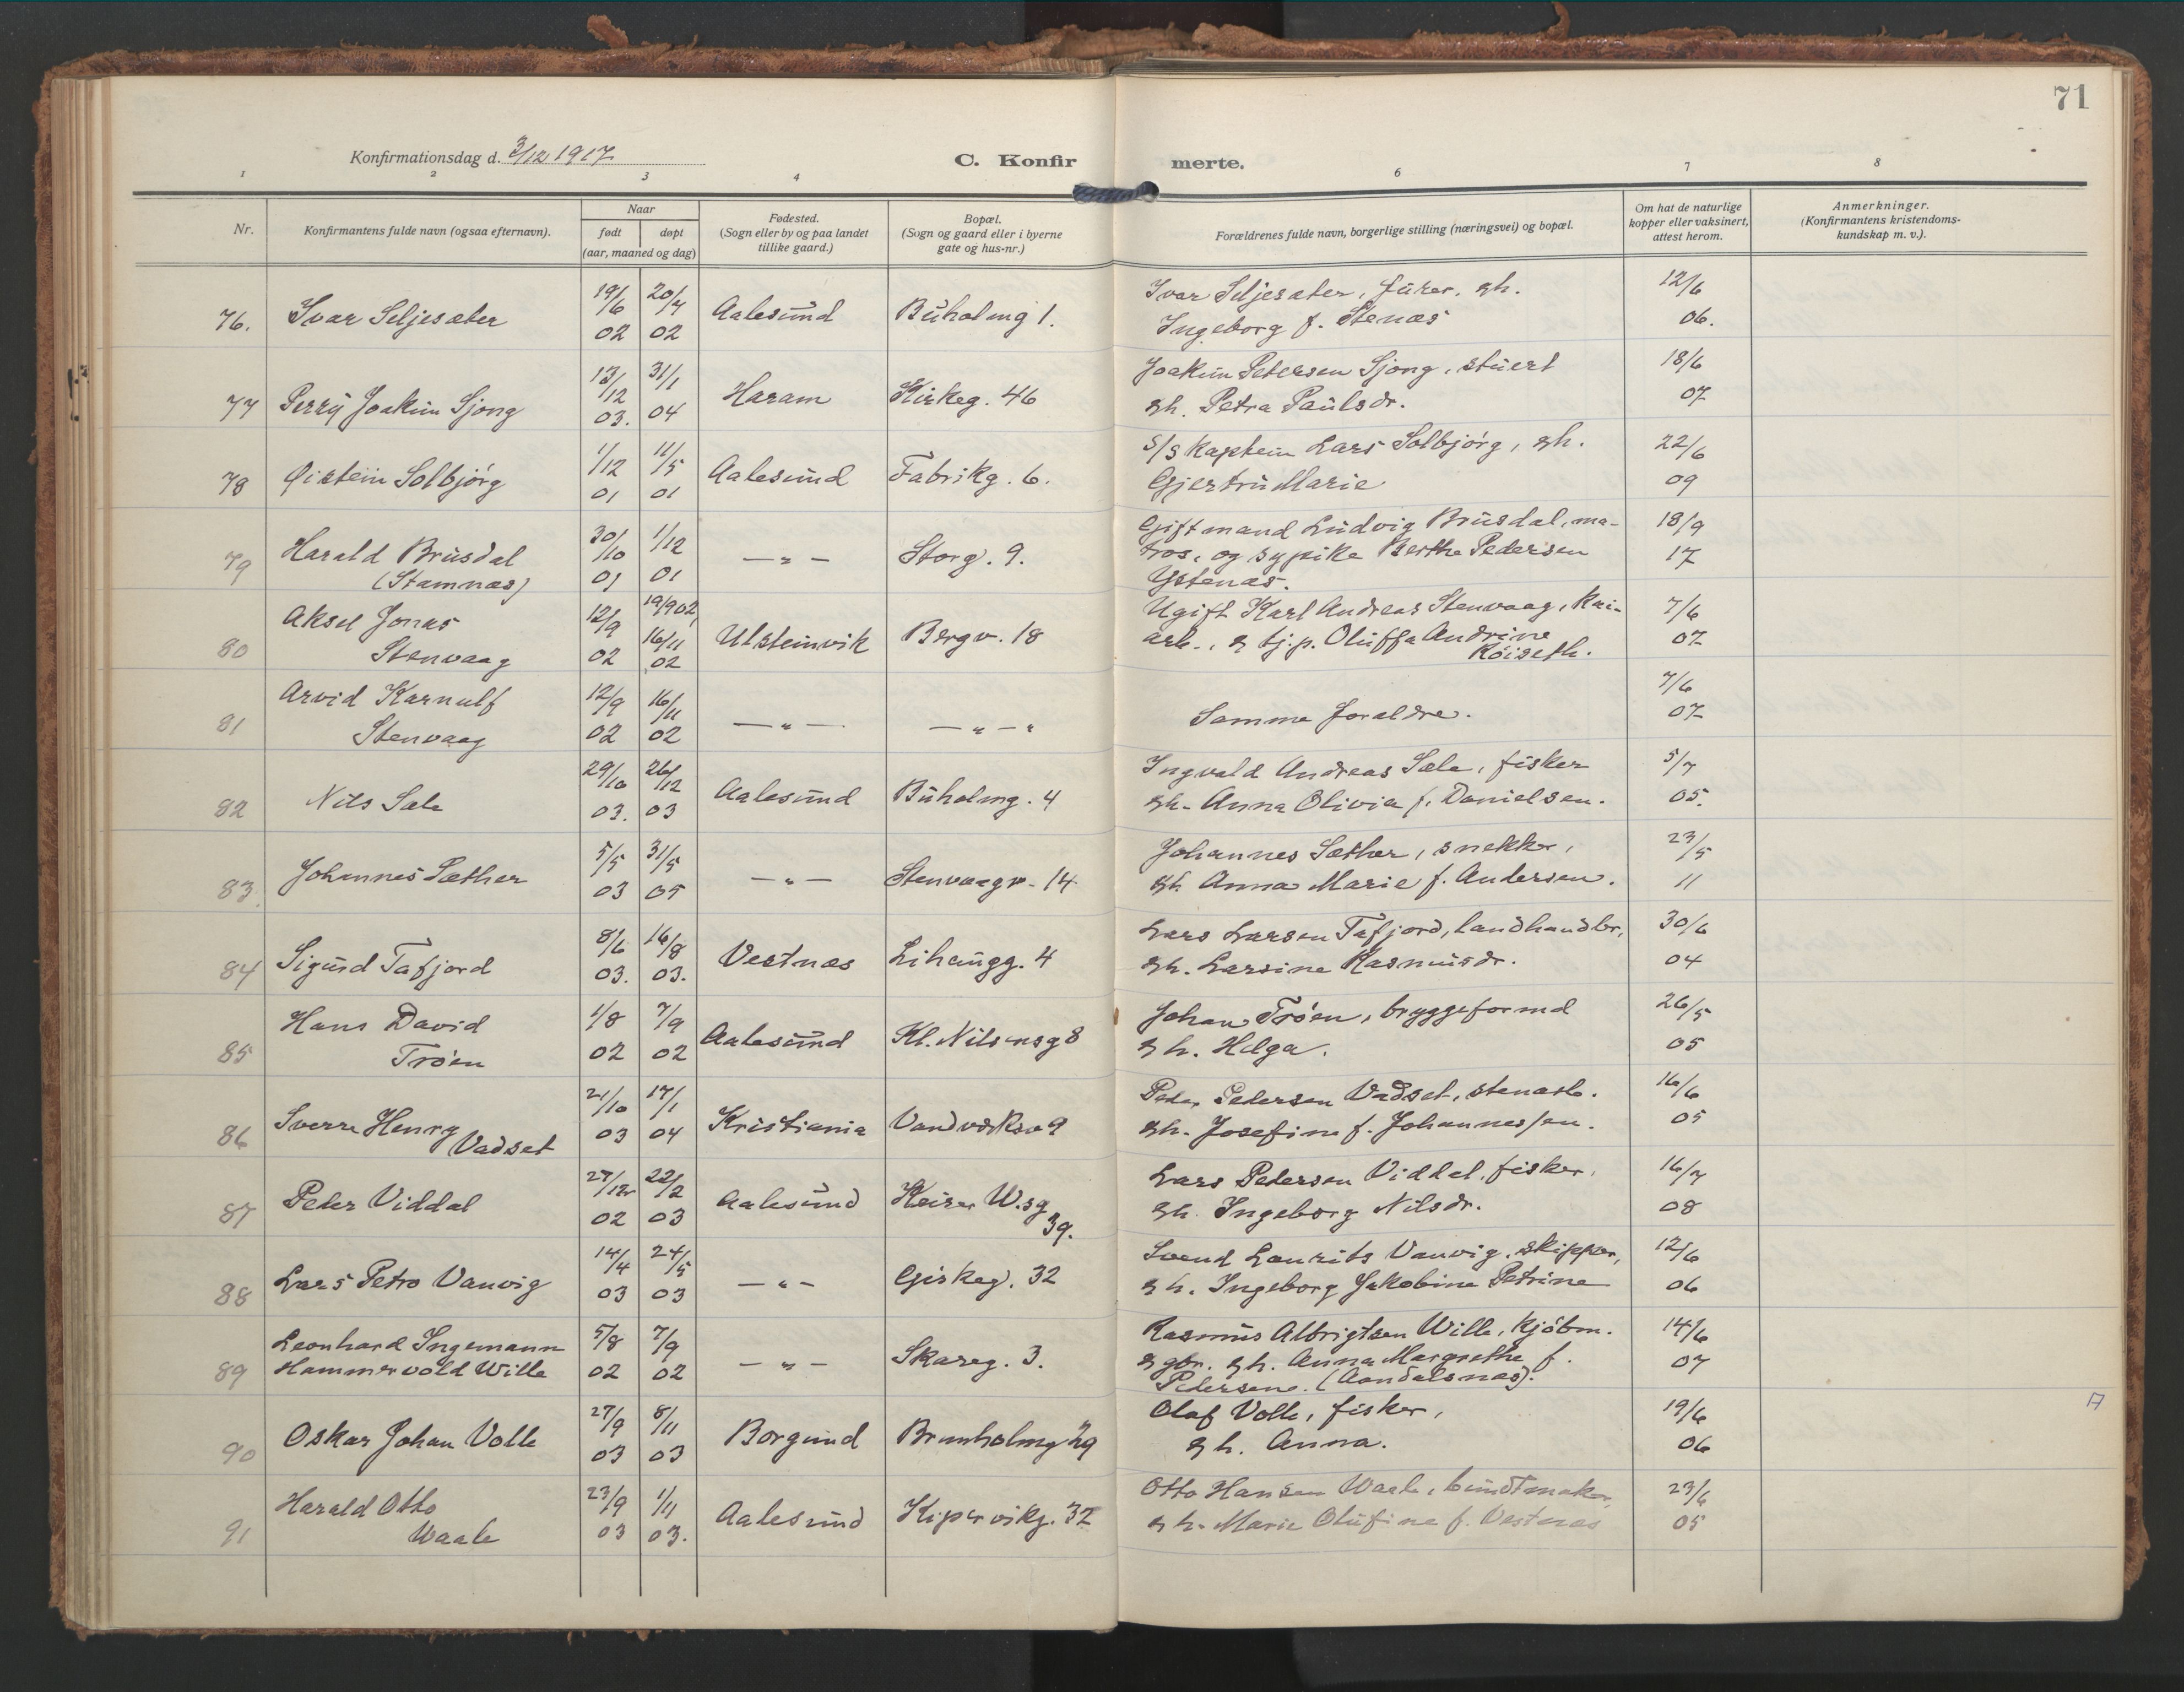 71
Konfirmationsdag d. 3/12 1917
C. Konfirmerte.
1 2 3 4 6 7 8
Nr.
Konfirmantens fulde navn (ogsaa efternavn).
Naar
født døpt
(aar, maaned og dag)
Fødested.
(Sogn eller by og paa landet
tillike gaard.)
Bopæl.
(Sogn og gaard eller i byerne
gate og hus-nr.)
Forældrenes fulde navn, borgerlige stilling (næringsvei) og bopæl.
Om hat de naturlige
kopper eller vaksinert,
attest herom.
Anmerkninger.
(Konfirmantens kristendoms-
kundskap m. v.).
76. Ivar Seljesæter 19/6 02 20/7 02 Aalesund Buholmg 1. Ivar Seljesæter, fürer, gh. 12/6
Ingeborg f. Stenæs 06.
77 Perry Joakim Sjong 13/12 03. 31/1 04 Haram Kirkeg. 46 Joakim Petersen Sjong, stuert 18/6
gh. Petra Paulsdr. 07
78 Øistein Solbjörg 1/12 01 11/5 01 Aalesund Fabrikg. 6. S/S kaptein Lars Solbjörg, gh. 22/6
Gjertru Marie 09
79 Harald Brusdal 30/10 01 1/12 01 — " — Storg. 9. Gift mand Ludvig Brusdal, ma- 18/9
(Stamnæs) tros, og sypike Berthe Pedersen 17
Ystenæs.
80 Aksel Jonas 12/9 02 19/9 02, 16/11 02 Ulsteinvik Bergv. 18 Ugift Karl Andreas Stenvaag, kai- 7/6
Stenvaag arb., & tj.p. Oluffa Andrine 07
Röiseth.
81 Arvid Karnulf 12/9 02 16/11 02 — " — — " — " Samme foraldre. 7/6
Stenvaag 07
82 Nils Sæle 29/10 03. 26/12 03 Aalesund Buholmg. 4 Ingvald Andreas Sæle, fisker 5/7
gh. Anna Olivia f. Danielsen. 05.
83. Johannes Sæther 5/5 03 31/5 05 — " — Stenvaagv. 14 Johannes Sæther, snekker, 23/5
gh Anna Marie f. Andersen. 11
84 Sigurd Tafjord 8/6 03. 16/8 03. Vestnæs Lihaugg. 4 Lars Larsen Tafjord, landhandler, 30/6
gh. Larsine Rasmusdr. 04
85 Hans David 1/8 02 7/9 02 Aalesund Kl. Nilsensg 8 Johan Tröen, bryggeformd 26/5
Tröen gh. Helga. 05
86 Sverre Henry 21/10 03 17/1 04 Kristiania Vandverksv 9 Peder Pedersen Vadset, stenarb. 16/6
Vadset gh. Josefine f. Johannessen. 05
87 Peder Viddal 27/12 02 22/2 03 Aalesund Keiser W.sg Lars Pedersen Viddal, fisker, 16/7
39. gh. Ingeborg Nilsdr. 08
88 Lars Petro Vanvig 14/4 03 24/5 03 — " — Giskeg. 32 Svend Laurits Vanvig, skipper, 12/6
gh. Ingeborg Jakobine Petrine 06
89 Leonhard Ingemann 5/8 02 7/9 02 — " — Skareg. 3. Rasmus Albrigtsen Wille, kjöbm. 14/6
Hammervold Wille & gbr. gh. Anna Margrethe f. 07
Pedersen. (Aandalsnæs).
90 Oskar Johan Volle 27/9 03 8/11 03 Borgund Brunholmg 29 Olaf Volle, fisker, 19/6
gh. Anna. 06
91 Harald Otto 23/9 03 1/11 03. Aalesund Kipervikg. 32 Otto Hansen Waale, bundtmaker, 23/6
Waale gh. Marie Olufine f. Vestnes 05